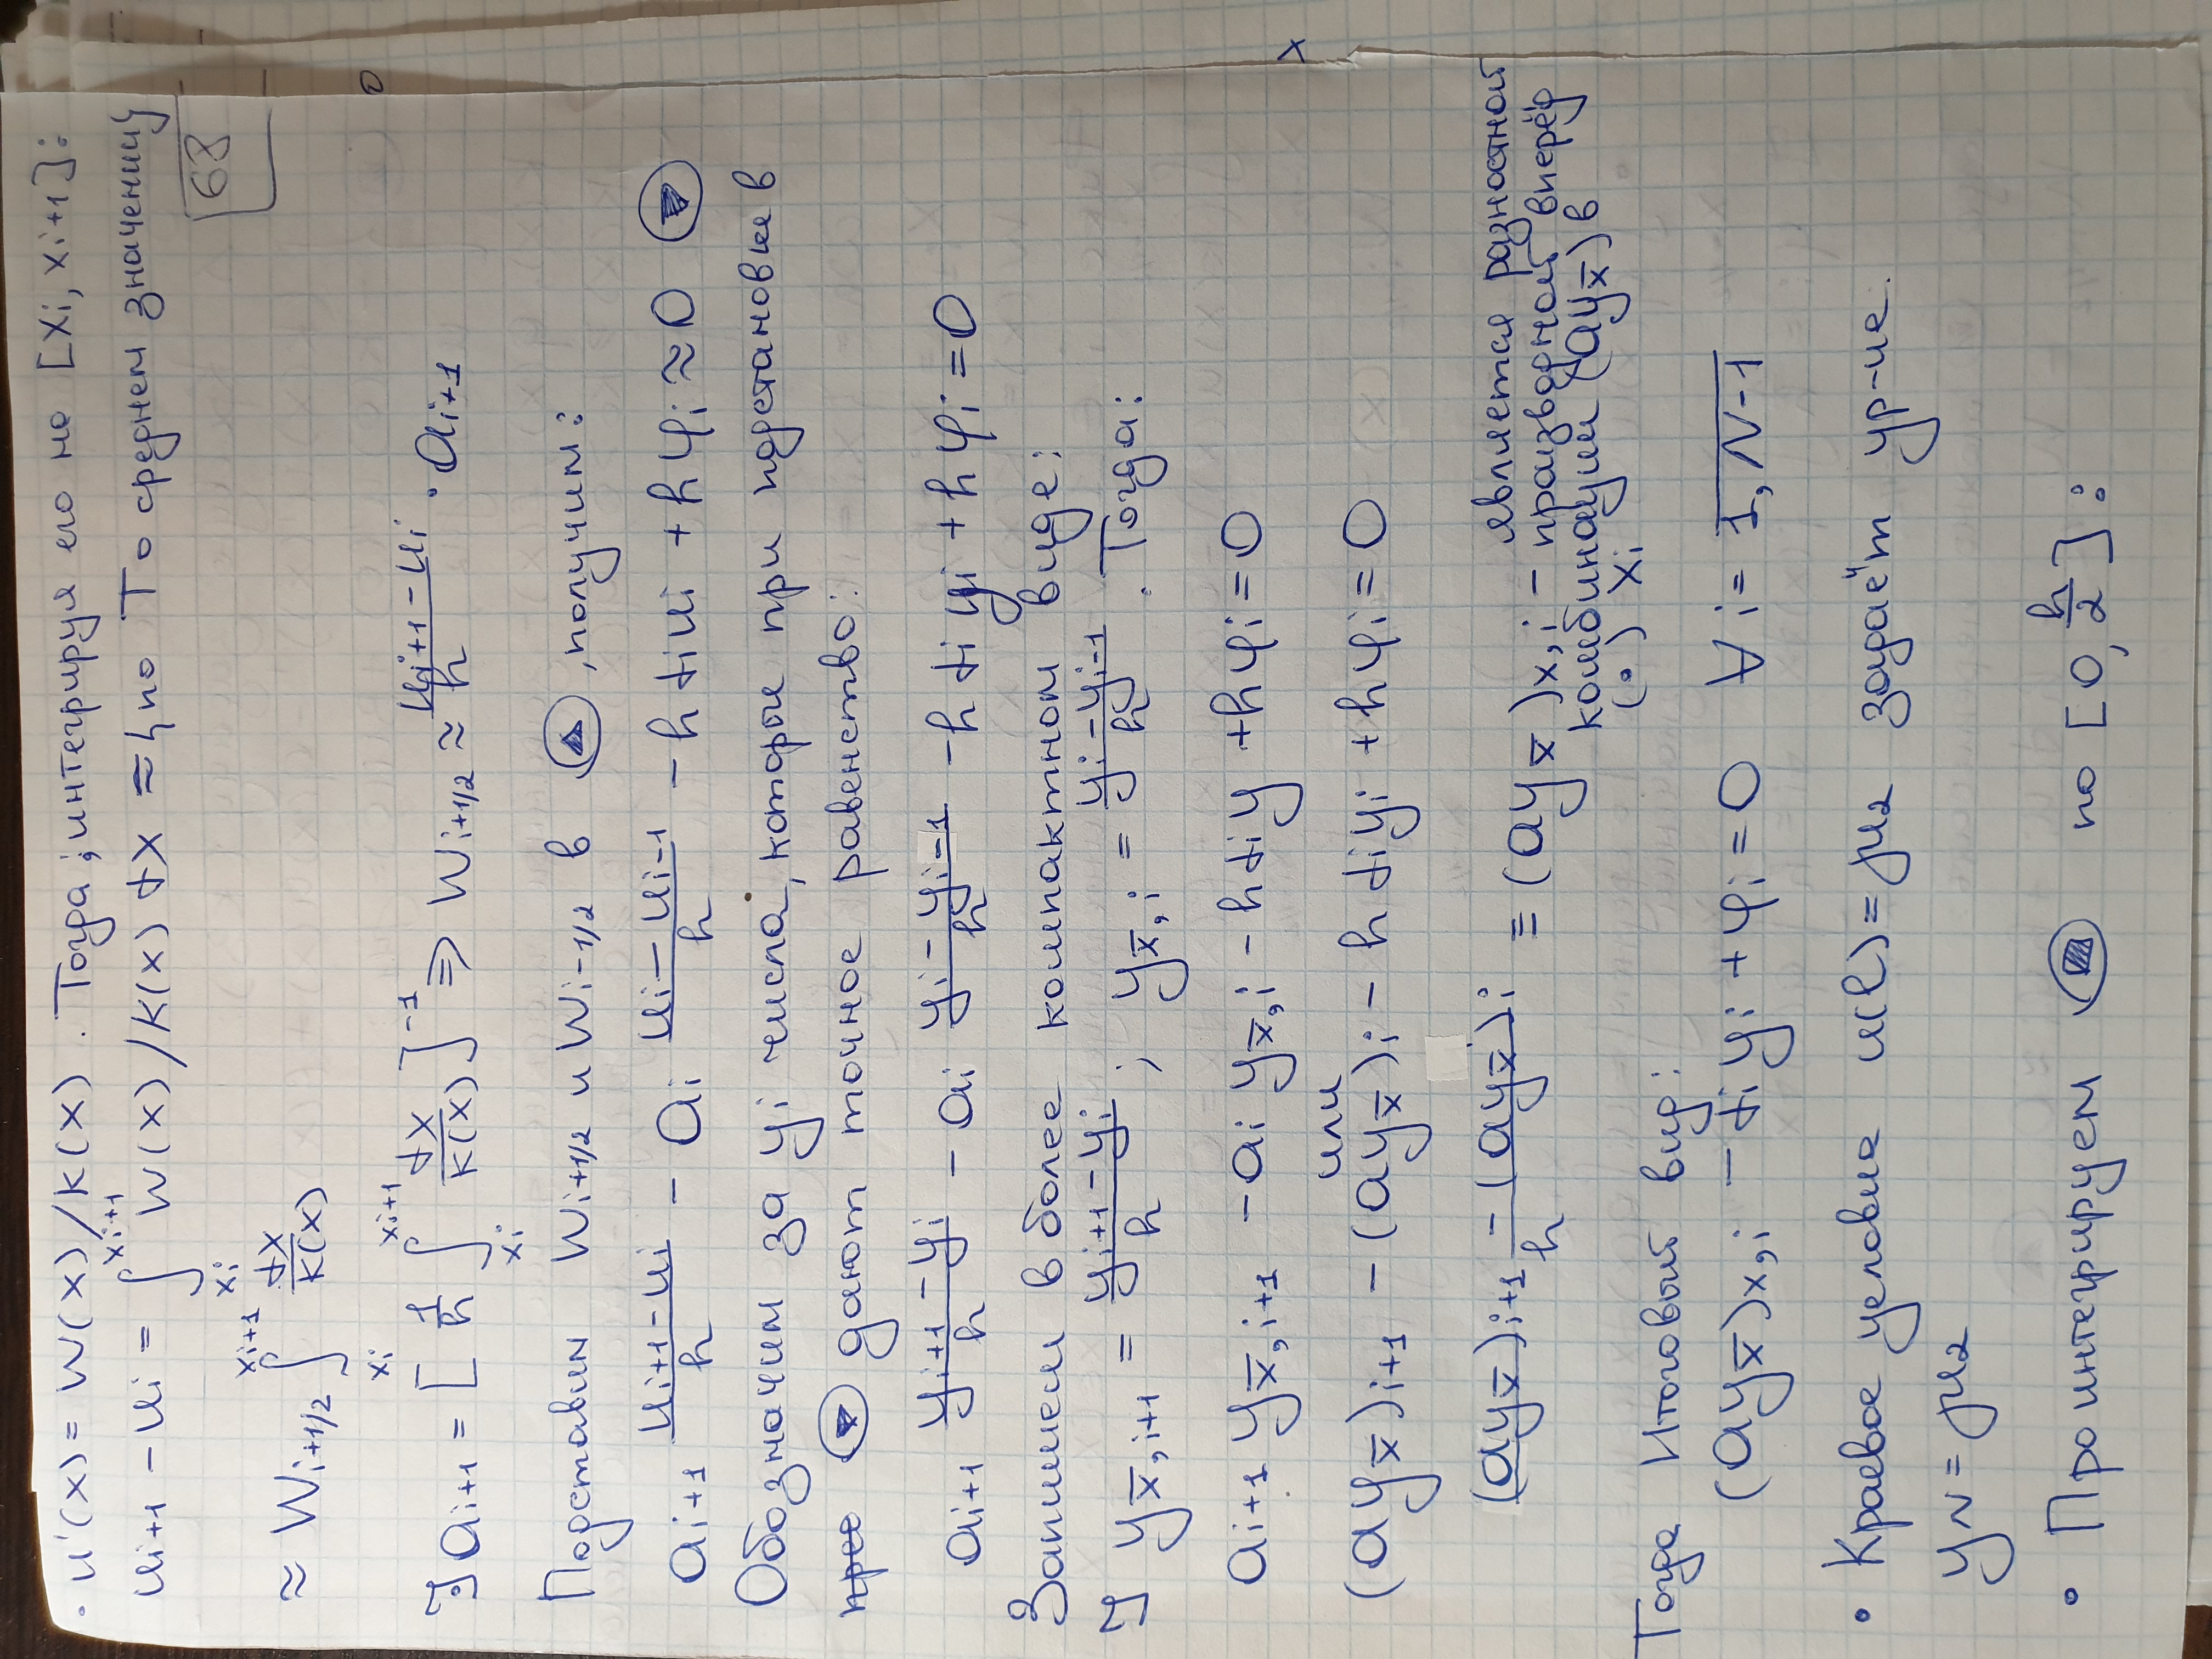 • u'(x) = w(x)/k(x). Тогда, интегрируя его на [xi, xi+1]:
ui+1 - ui = ∫_{xi}^{xi+1} w(x)/k(x) dx ≈ {по Т о среднем значении}
68
≈ wi+1/2 ∫_{xi}^{xi+1} dx/k(x)
] ai+1 = [1/h ∫_{xi}^{xi+1} dx/k(x)]^{-1} ⇒ wi+1/2 ≈ (ui+1 - ui)/h · ai+1
Подставим wi+1/2 и wi-1/2 в ▲, получим:
ai+1 (ui+1 - ui)/h - ai (ui - ui-1)/h - h di ui + h φi ≈ 0 ▼
Обозначим за yi числа, которые при подстановке в
▼ дают точное равенство:
ai+1 (yi+1 - yi)/h - ai (yi - yi-1)/h - h di yi + h φi = 0
Запишем в более компактном виде:
] yx̄,i+1 = (yi+1 - yi)/h ; yx̄,i = (yi - yi-1)/h . Тогда:
ai+1 yx̄,i+1 - ai yx̄,i - h di y + h φi = 0
или
(ayx̄)i+1 - (ayx̄)i - h di yi + h φi = 0
((ayx̄)i+1 - (ayx̄)i)/h = (ayx̄)x,i - является разностной
производной вперёд
комбинации (ayx̄) в
(·) xi
Тогда итоговый вид:
(ayx̄)x,i - di yi + φi = 0 ∀ i = 1, N-1
• Краевое условие u(l) = μ2 задаёт ур-ие.
yN = μ2
• Проинтегрируем ■ по [0, h/2]: